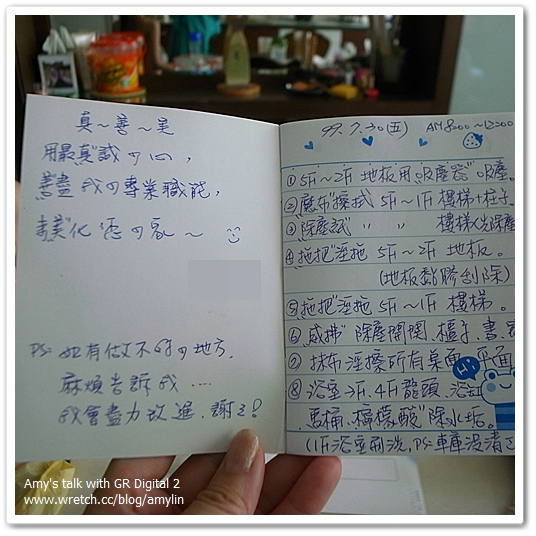 真～善～美
用最真誠の心，
善盡我の專業職能，
美化您の家～
PS: 如有做不好の地方，
麻煩告訴我‥‥
我會盡力改進．謝謝！
99.7.30(五) AM 8:00～12:00
①5F～2F 地板用"吸塵器"吸塵。
②麈布"擦拭 5F～1F 樓梯+柱子
③除塵試 〃 〃 樓梯(先除塵
④拖把"溼拖 5F～2F 地板。
(地板黏膠刮除)
⑤拖把"溼拖 5F～1F 樓梯。
⑥威拂"除塵開關、櫃子、書、
⑦抹布溼擦所有桌面、平面
⑧浴室→5F、4F龍頭、浴缸
馬桶、檸檬酸"除水垢。
(1F浴室刷洗，PS:車庫沒清
Hi
Amy's talk with GR Digital 2
www.wretch.cc/blog/amylin